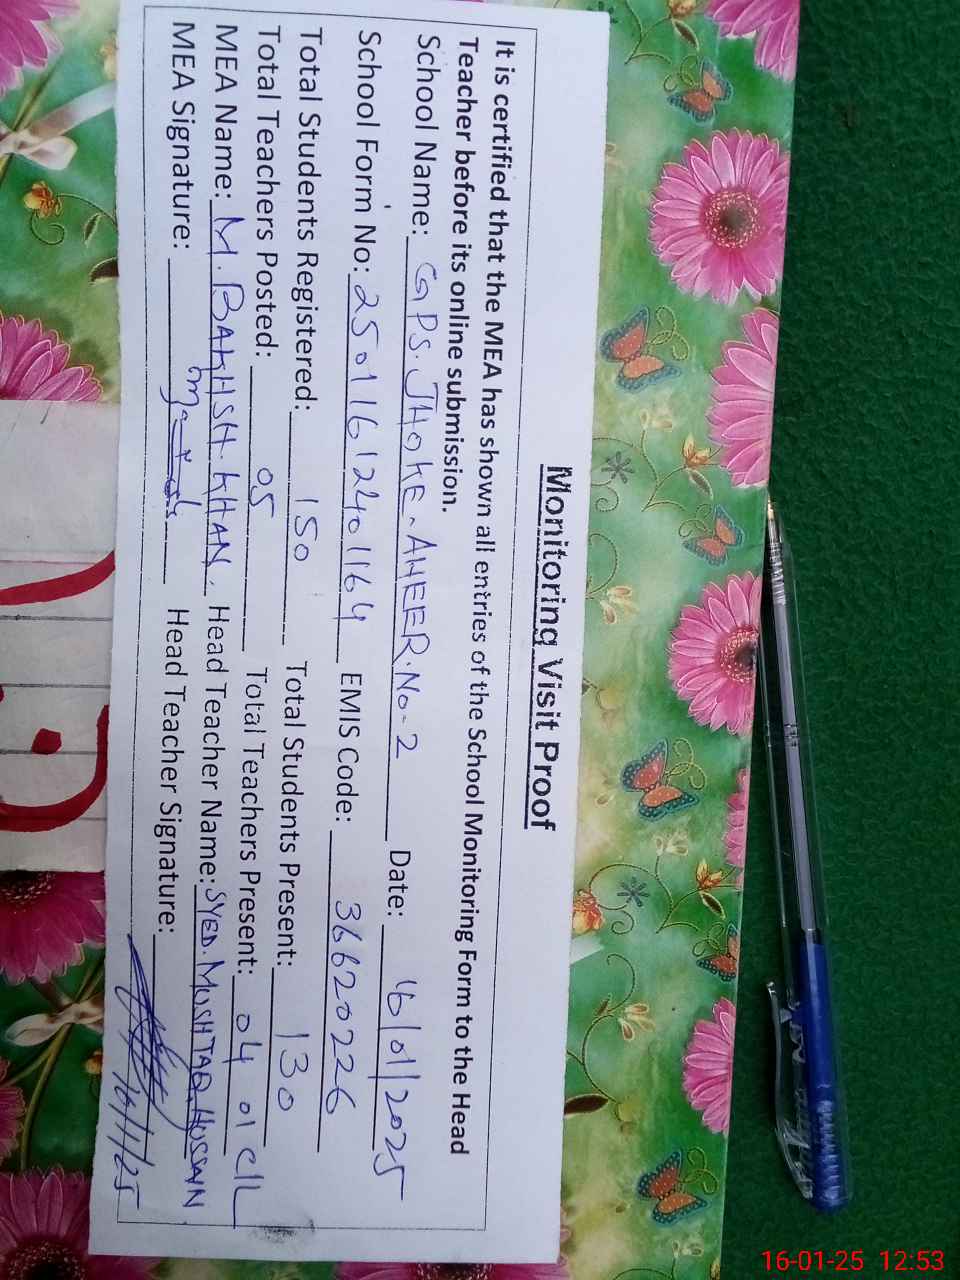 Monitoring Visit Proof
It is certified that the MEA has shown all entries of the School Monitoring Form to the Head
Teacher before its online submission.
School Name: GPS. JHOKE. AHEER. No-2 Date: 16/01/2025
School Form No: 250116124011641 EMIS Code: 36620226
Total Students Registered: 150 Total Students Present: 130
Total Teachers Posted: 05 Total Teachers Present: 04 01 C/L
MEA Name: M. BAKHSH. KHAN. Head Teacher Name: SYED. MUSHTAQ. HUSSAIN
MEA Signature: Head Teacher Signature: 16/1/25
16-01-25 12:53